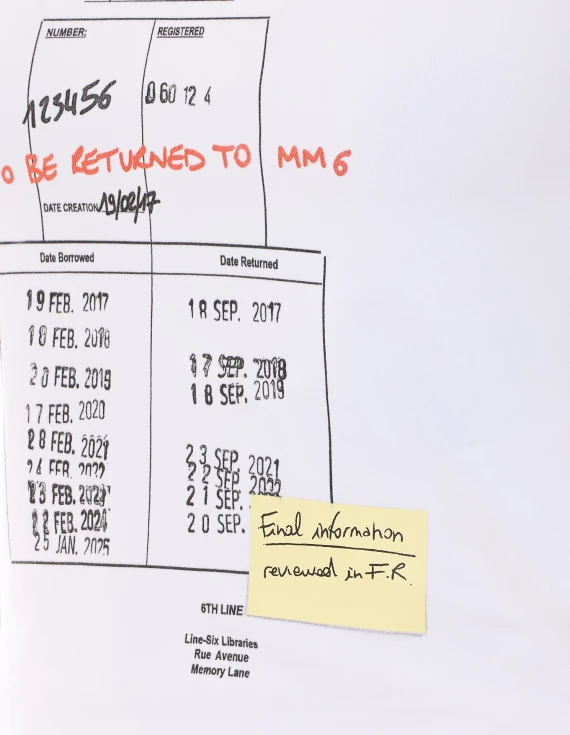 NUMBER: REGISTERED
123456 060 12 4
O BE RETURNED TO MM6
DATE CREATION 19/02/17
Date Borrowed Date Returned
19 FEB. 2017 18 SEP. 2017
18 FEB. 2018
17 SEP. 2018
20 FEB. 2019 18 SEP. 2019
17 FEB. 2020
28 FEB. 2021 23 SEP. 2021
24 FEB. 2022 22 SEP. 2022
23 FEB. 2023 21 SEP.
22 FEB. 2024 20 SEP.
25 JAN. 2025
Final information
reviewed in F.R.
6TH LINE
Line-Six Libraries
Rue Avenue
Memory Lane